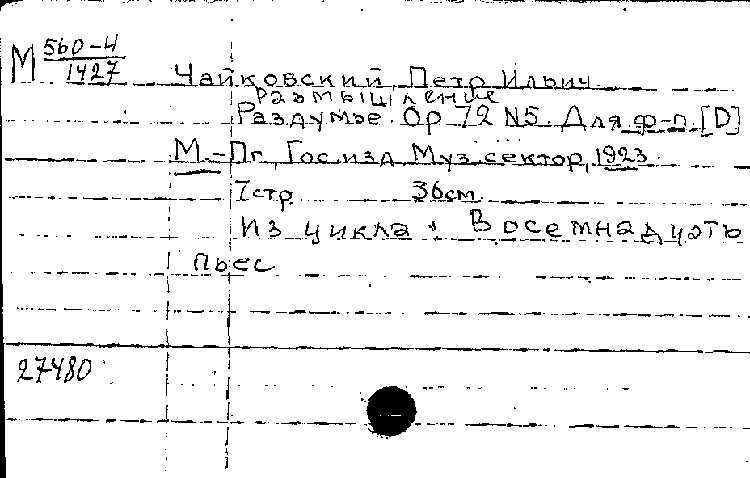 М 560-4
1427
Чайковский, Петр Ильич
Размышление
Раздумье. Op 72 N5. Для ф-п. [D]
М.-Пг, Госизд. Муз. сектор, 1923.
7стр 36см
Из цикла: Восемнадцать
пьес
27480